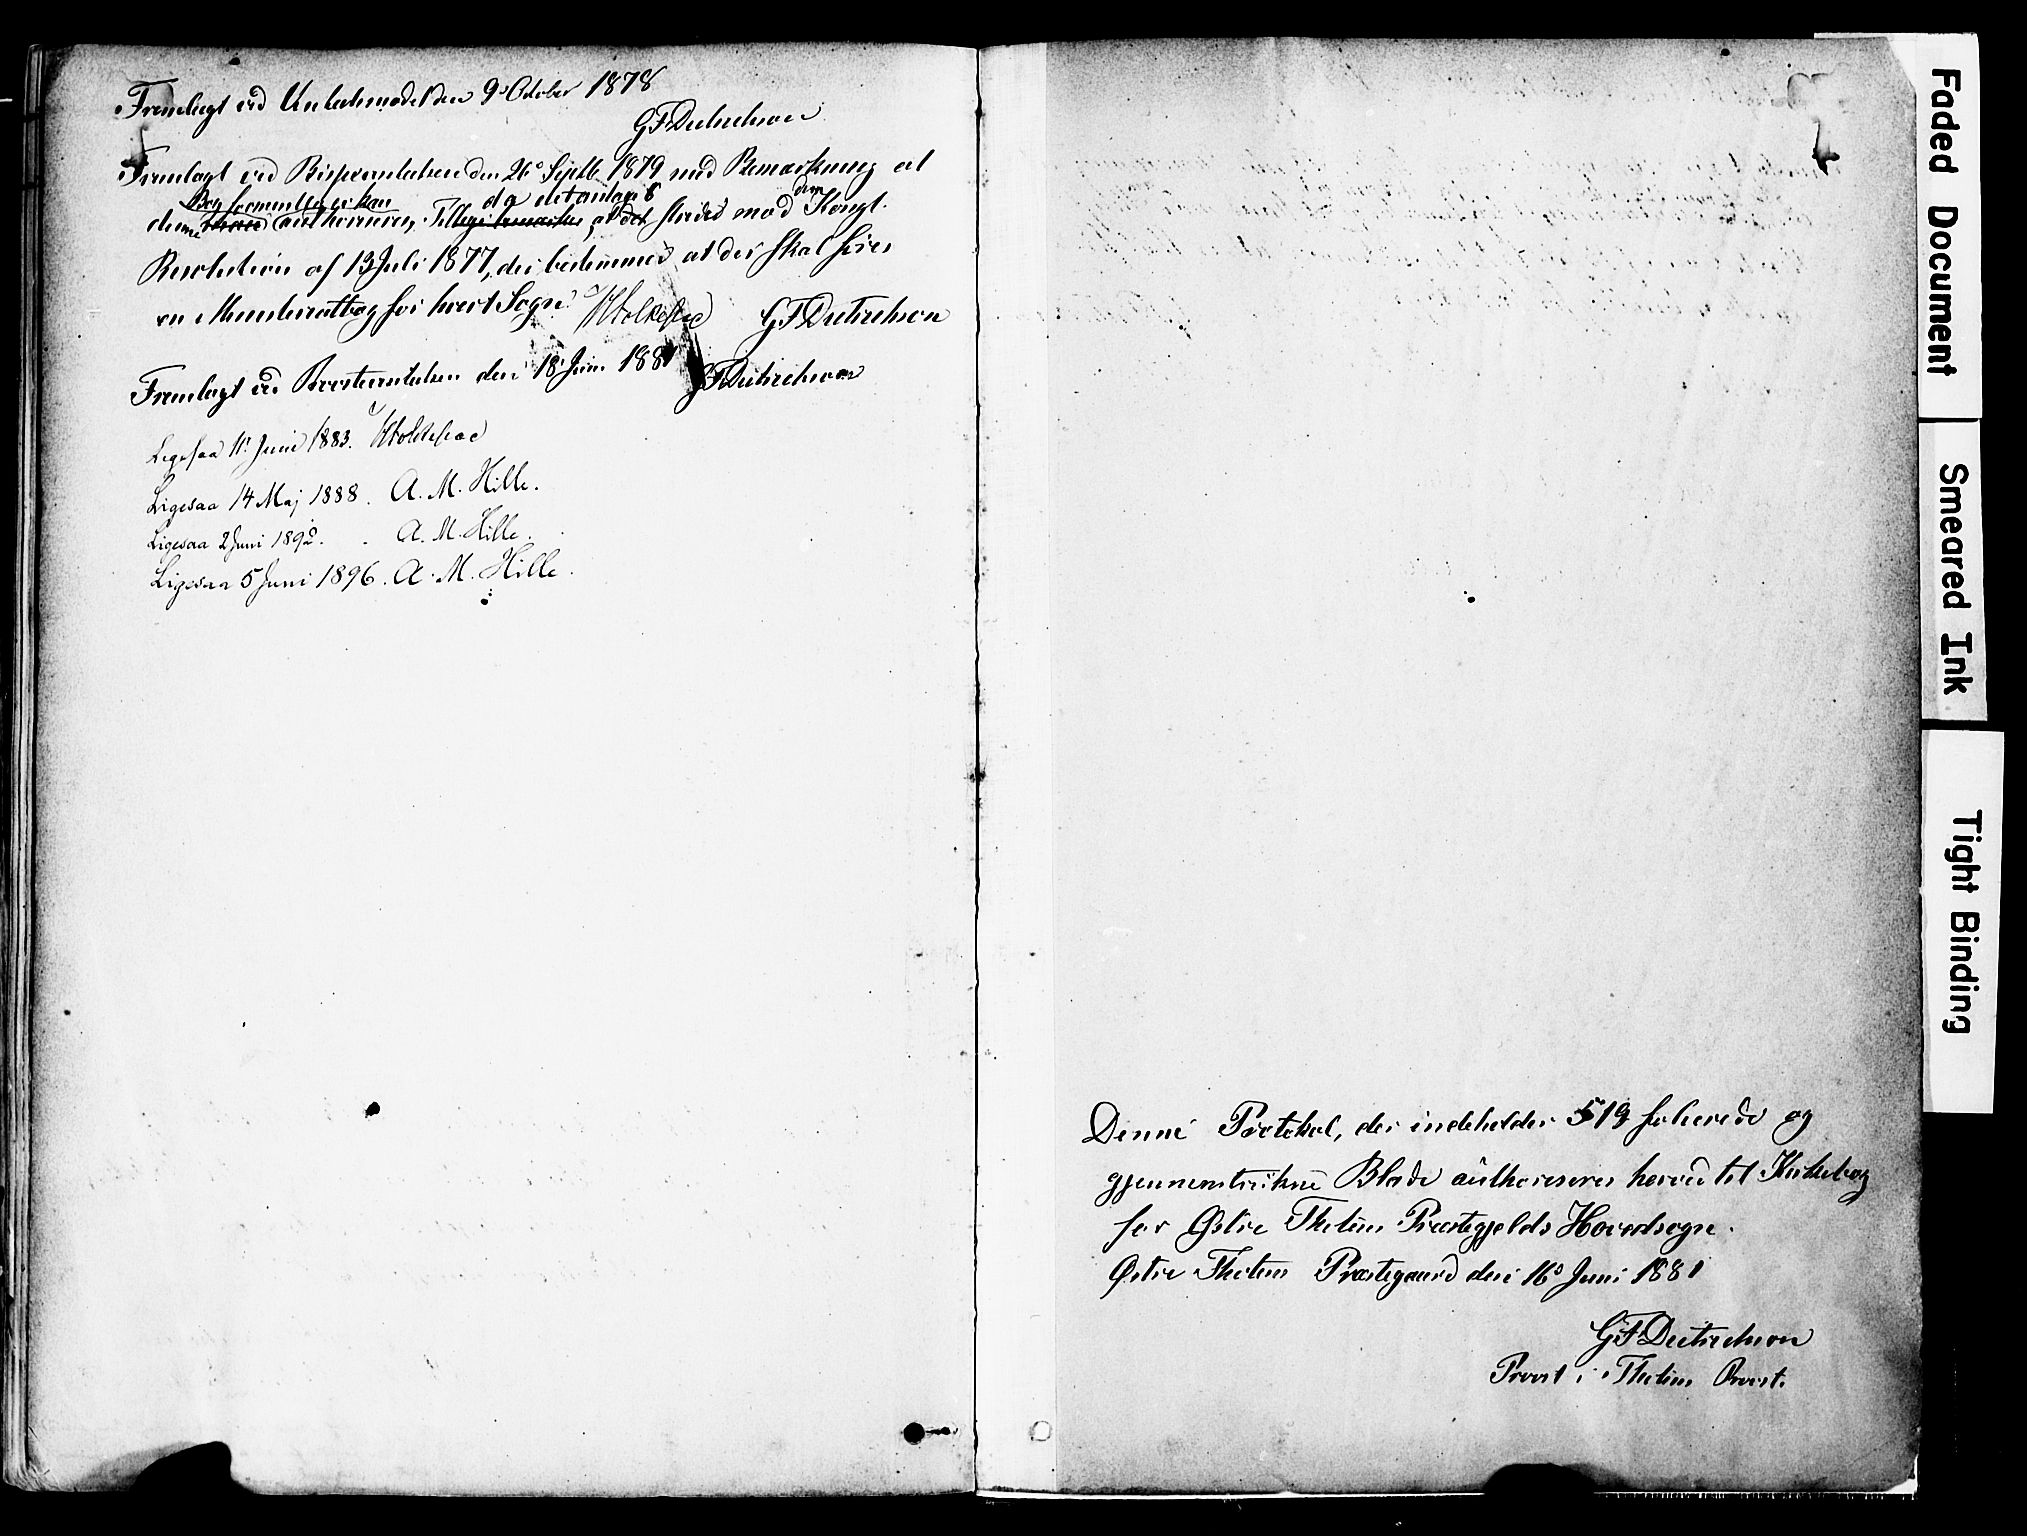 Fremlagt ved Kalentemødet den 9 October 1878
GFDietrichson
Fremlagt ved Bispevisitatsen den 26 Septb 1879 med Bemærkning at
Bog formentlig ei kan da det antages
denne authoriseres, at det strider mod den Kongl.
Resolution af 13 Juli 1877, der bestemmer at der skal føres
en Ministerialbog for hvert Sogn. GFDietrichson
Fremlagt ved Provstevisitatsen den 18 Juni 1881 GFDietrichson
Ligesaa 11 Juni 1883.
Ligesaa 14 Maj 1888. A. M. Hille.
Ligesaa 2 Juni 1892. A. M. Hille.
Ligesaa 5 Juni 1896. A. M. Hille.
Denne Protokol, der indeholder 519 folierede og
gjennemtrukne Blade authoriseres herved til Kirkebog
for Østre Thotens Præstegjelds Hovedsogn.
Østre Thotens Præstegaard den 16 Juni 1881
GFDietrichson
Provst i Thotens Provst.
Faded Document
Smeared Ink
Tight Binding